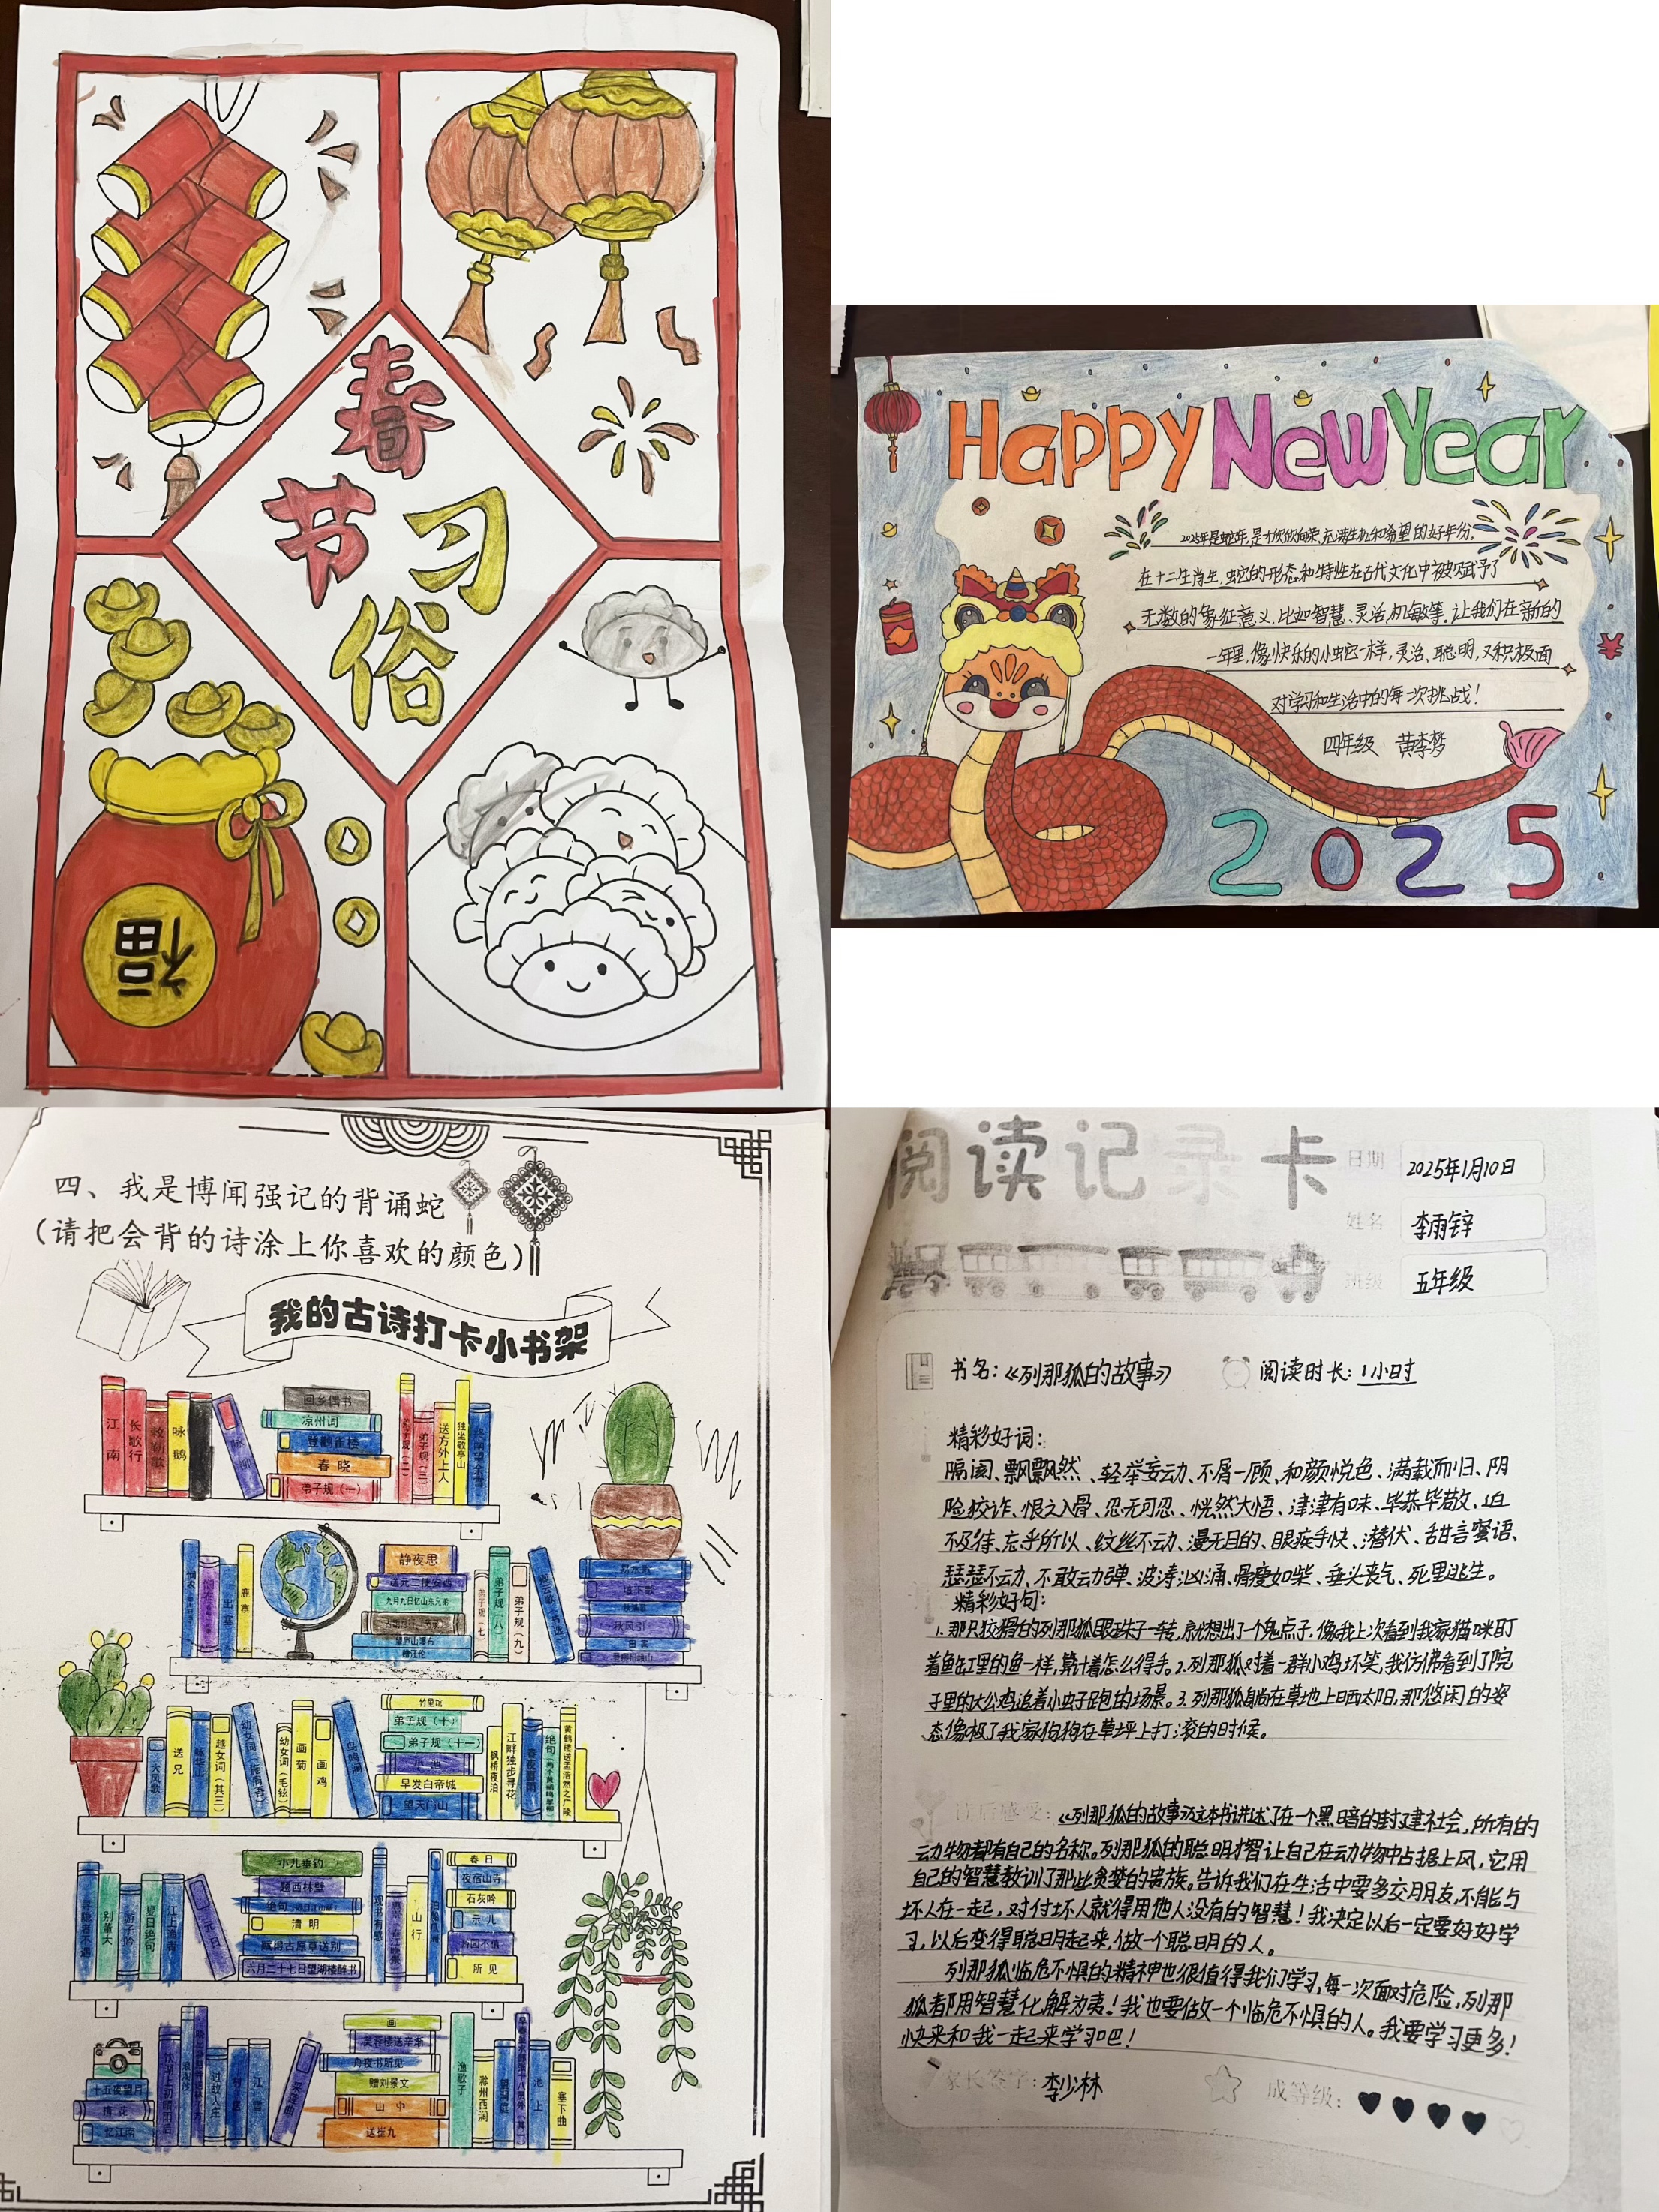 春
节
习
俗
福
Happy New Year
2025年是蛇年,是十欣欣向荣,充满生机和希望的好年份。
在十二生肖生,蛇的形态和特性在古代文化中被赋予了
无数的象征意义,比如智慧、灵活、机敏等。让我们在新的
一年里,像快乐的小蛇一样,灵活、聪明,又积极面
对学习和生活中的每一次挑战!
四年级 黄李梦
2025
四、我是博闻强记的背诵蛇
(请把会背的诗涂上你喜欢的颜色)
我的古诗打卡小书架
江南
长歌行
敕勒歌
咏鹅
咏柳
回乡偶书
凉州词
登鹳雀楼
春晓
弟子规(一)
弟子规(二)
弟子规(三)
送方外上人
独坐敬亭山
终南望余雪
悯农
出塞
鹿柴
静夜思
送元二使安西
九月九日忆山东兄弟
望庐山瀑布
赠汪伦
弟子规(七)
弟子规(八)
弟子规(九)
秋风引
田家
大风歌
送兄
越女词(其三)
幼女词(毛铉)
画菊
画鸡
鸟鸣涧
竹里馆
弟子规(十)
弟子规(十一)
小池
早发白帝城
望天门山
枫桥夜泊
江畔独步寻花
春夜喜雨
绝句
黄鹤楼送孟浩然之广陵
寻隐者不遇
别董大
游子吟
夏日绝句
江上渔者
元日
小儿垂钓
题西林壁
绝句
清明
赋得古原草送别
六月二十七日望湖楼醉书
观书有感
山行
春日
夜宿山寺
石灰吟
示儿
所见
十五夜望月
梅花
忆江南
过故人庄
江雪
采薇曲
画
芙蓉楼送辛渐
舟夜书所见
赠刘景文
山中
送崔九
渔歌子
滁州西涧
望洞庭
池上
塞下曲
阅读记录卡
日期 2025年1月10日
姓名 李雨锌
班级 五年级
书名:《列那狐的故事》 阅读时长:1小时
精彩好词:
隔阂、飘飘然、轻举妄动、不屑一顾、和颜悦色、满载而归、阴
险狡诈、恨之入骨、忍无可忍、恍然大悟、津津有味、毕恭毕敬、迫
不及待、忘乎所以、纹丝不动、漫无目的、眼疾手快、潜伏、甜言蜜语、
瑟瑟不动、不敢动弹、波涛汹涌、骨瘦如柴、垂头丧气、死里逃生。
精彩好句:
1.那只狡猾的列那狐眼珠子一转,就想出了个鬼点子.像我上次看到我家猫咪盯
着鱼缸里的鱼一样,算计着怎么得手。2.列那狐对着一群小鸡坏笑,我仿佛看到了院
子里的大公鸡追着小虫子跑的场景。3.列那狐躺在草地上晒太阳,那悠闲的姿
态像极了我家狗狗在草坪上打滚的时候。
读后感受:《列那狐的故事》这本书讲述了在一个黑暗的封建社会,所有的
动物都有自己的名称。列那狐的聪明才智让自己在动物中占据上风,它用
自己的智慧教训了那些贪婪的贵族。告诉我们在生活中要多交朋友,不能与
坏人在一起,对付坏人就得用他人没有的智慧!我决定以后一定要好好学
习,以后变得聪明起来,做一个聪明的人。
列那狐临危不惧的精神也很值得我们学习,每一次面对危险,列那
狐都用智慧化解为夷!我也要做一个临危不惧的人。我要学习更多!
快来和我一起来学习吧!
家长签字:李少林 成等级: